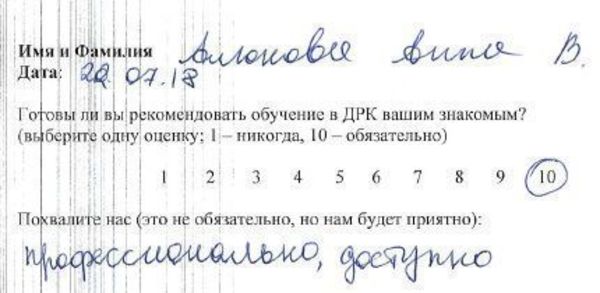 Имя и Фамилия Алокова Анна В.
Дата: 22.07.18
Готовы ли вы рекомендовать обучение в ДРК вашим знакомым?
(выберите одну оценку; 1 – никогда, 10 – обязательно)
1 2 3 4 5 6 7 8 9 10
Похвалите нас (это не обязательно, но нам будет приятно):
профессионально, доступно